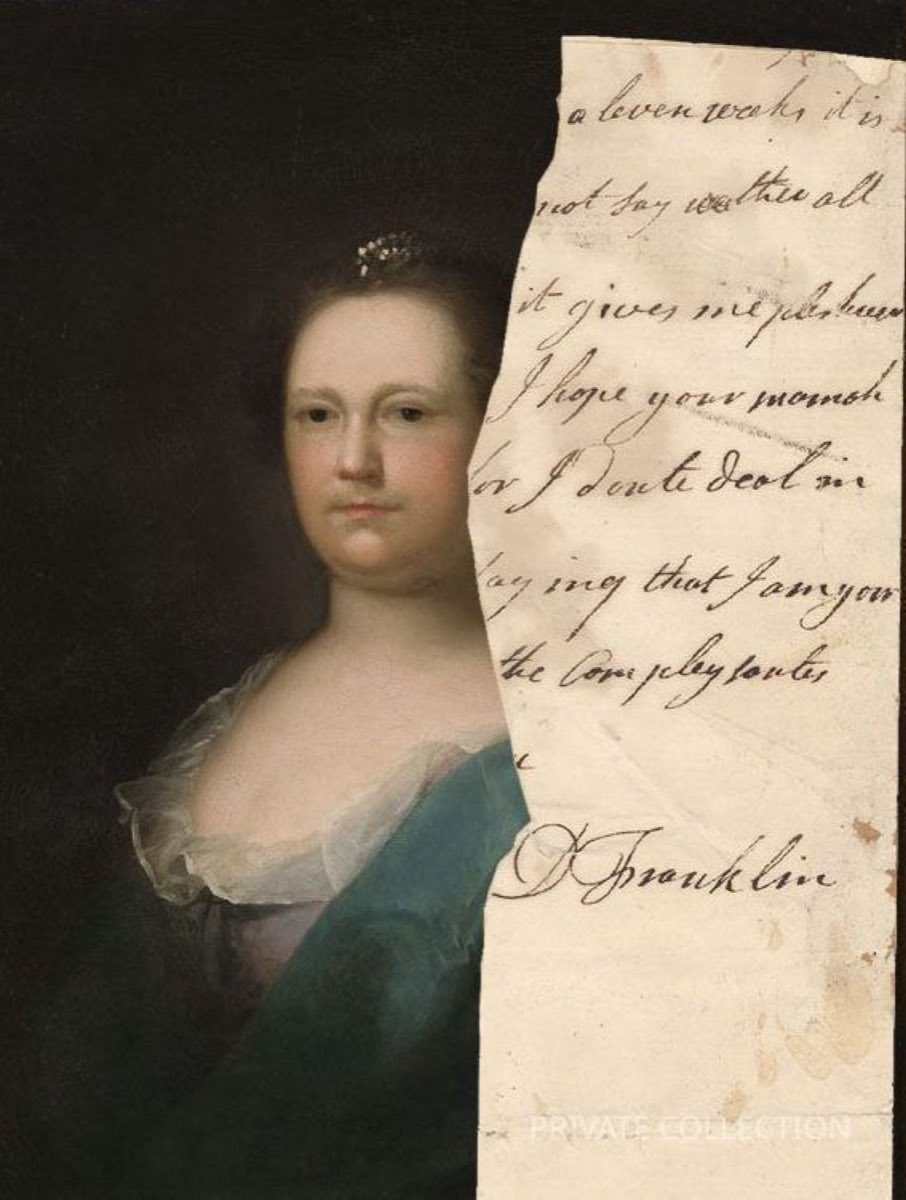 a leven weeks it is
not say wather all
it gives me pleshuer
I hope your mamah
for I donte deal in
saying that I am your
the Compleysantes
D Franklin
PRIVATE COLLECTION